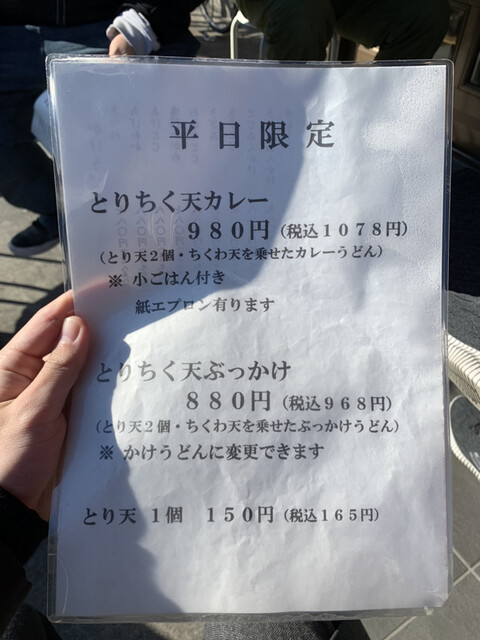 平日限定
とりちく天カレー
９８０円（税込１０７８円）
（とり天２個・ちくわ天を乗せたカレーうどん）
※ 小ごはん付き
紙エプロン有ります
とりちく天ぶっかけ
８８０円（税込９６８円）
（とり天２個・ちくわ天を乗せたぶっかけうどん）
※ かけうどんに変更できます
とり天 １個 １５０円（税込１６５円）